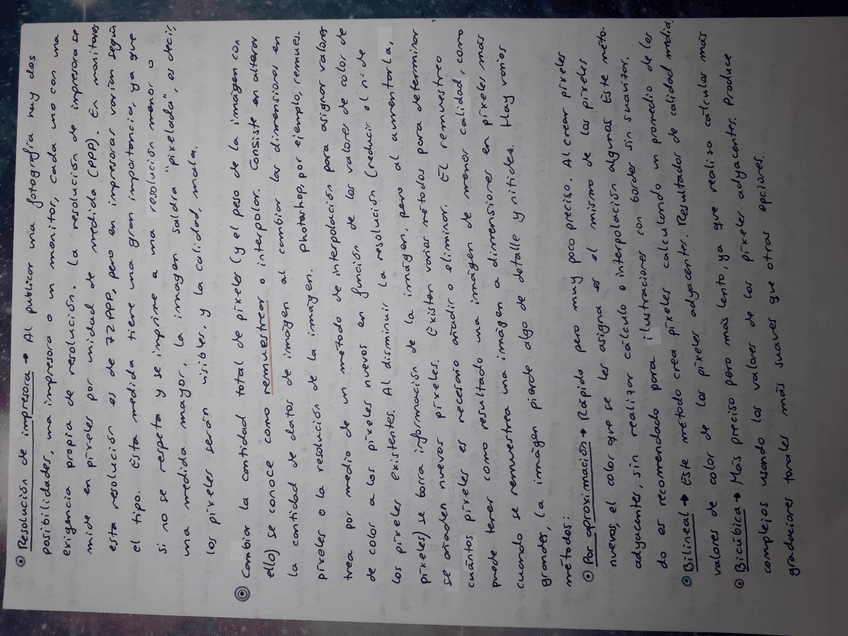 ⊙ Resolución de impresora → Al publicar una fotografía hay dos
posibilidades, una impresora o un monitor, cada uno con una
exigencia propia de resolución. La resolución de impresora se
mide en píxeles por unidad de medida (PPP). En monitores
esta resolución es de 72 PPP, pero en impresoras varían según
el tipo. Esta medida tiene una gran importancia, ya que
si no se respeta y se imprime a una resolución menor o
una medida mayor, la imagen saldría "pixelada", es decir,
los píxeles serán visibles, y la calidad, mala.
⊙ Cambiar la cantidad total de píxeles (y el peso de la imágen con
ello) se conoce como remuestreer o interpolar. Consiste en alterar
la cantidad de datos de imágen al cambiar las dimensiones en
píxeles o la resolución de la imágen. Photoshop, por ejemplo, remues-
trea por medio de un método de interpolación para asignar valores
de color a los píxeles nuevos en función de los valores de color de
los píxeles existentes. Al disminuir la resolución (reducir el nº de
píxeles) se borra información de la imágen, pero al aumentarla,
se añaden nuevos píxeles. Existen varios métodos para determinar
cuántos píxeles es necesario añadir o eliminar. El remuestreo
puede tener como resultado una imágen de menor calidad, como
cuando se remuestrea una imágen a dimensiones en píxeles más
grandes, la imágen pierde algo de detalle y nitidez. Hay varios
métodos:
⊙ Por aproximación → Rápido pero muy poco preciso. Al crear píxeles
nuevos, el color que se les asigna es el mismo de los píxeles
adyacentes, sin realizar cálculo o interpolación alguna. Este méto-
do es recomendado para ilustraciones con bordes sin suavizar.
⊙ Bilineal → Este método crea píxeles calculando un promedio de los
valores de color de los píxeles adyacentes. Resultados de calidad media.
⊙ Bicúbica → Más preciso pero más lento, ya que realiza cálculos más
complejos usando los valores de los píxeles adyacentes. Produce
gradaciones tonales más suaves que otras opciones.